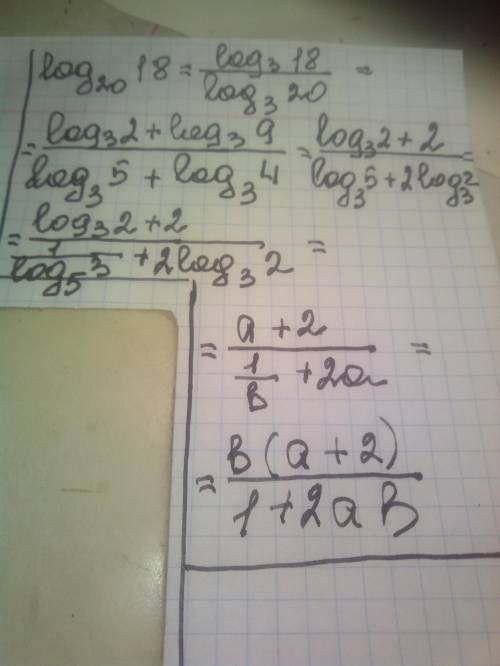 log₂₀ 18 = log₃ 18 / log₃ 20 =
= (log₃ 2 + log₃ 9) / (log₃ 5 + log₃ 4) = (log₃ 2 + 2) / (log₃ 5 + 2 log₃ 2) =
= (log₃ 2 + 2) / (1 / log₅ 3 + 2 log₃ 2) =
= (a + 2) / (1/в + 2a) =
= в(a + 2) / (1 + 2aв)